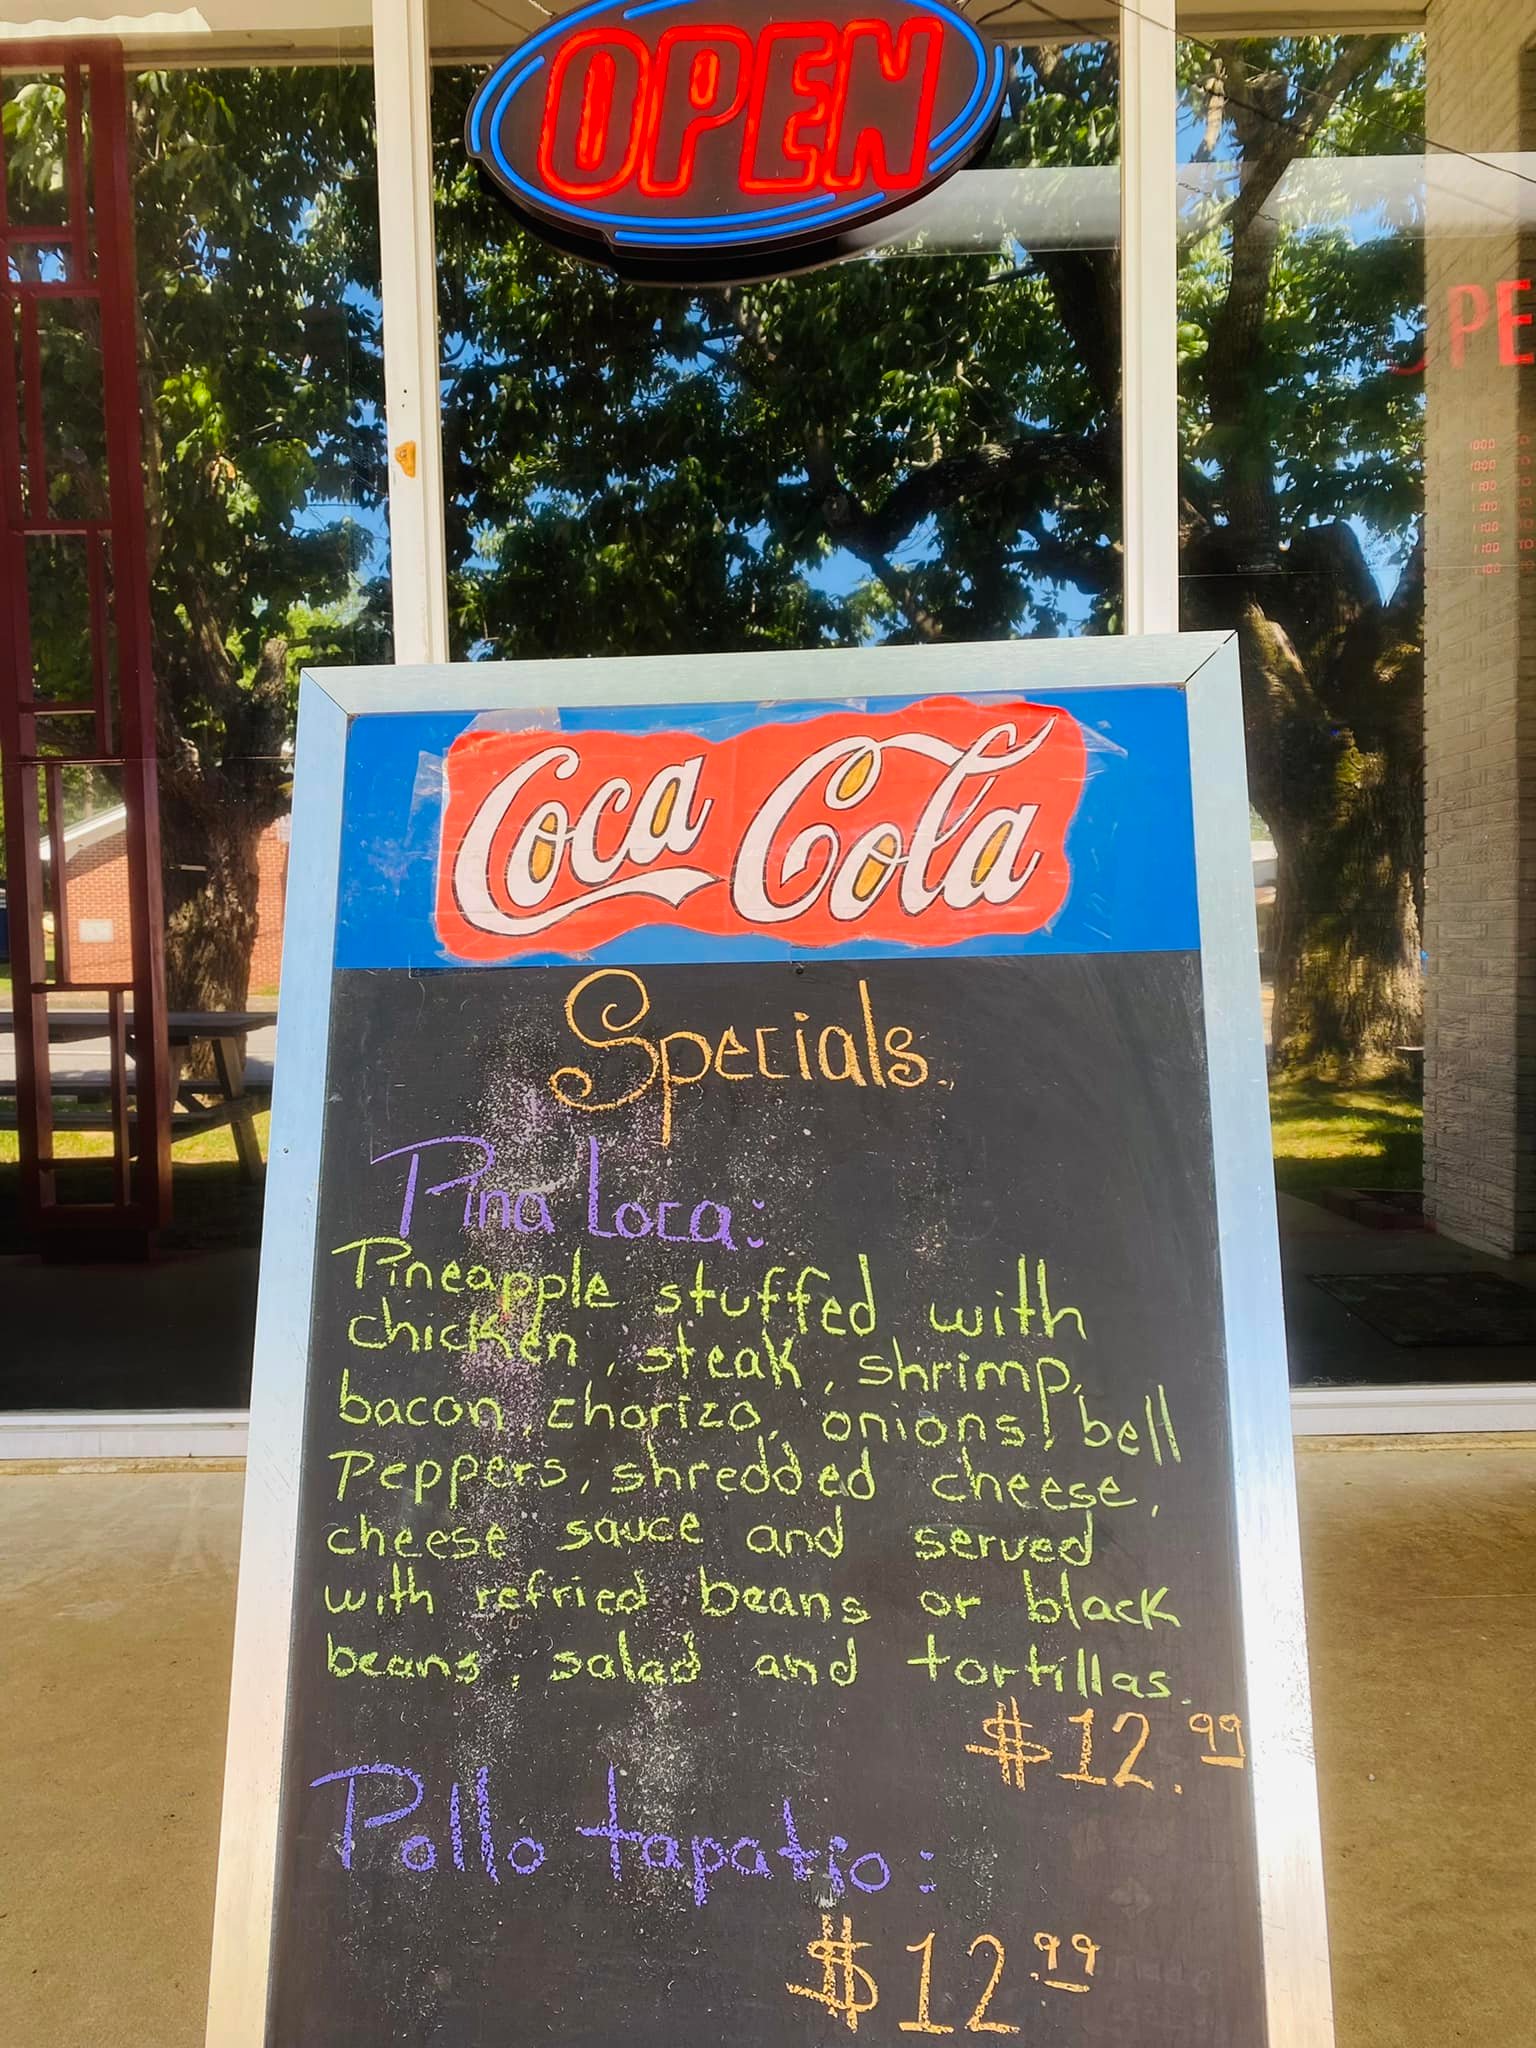 OPEN
PE
1000
1000
1100
1100
1100
1100 TO
1100
Coca Cola
Specials.
Pina Loca:
Pineapple stuffed with
chicken, steak, shrimp,
bacon, chorizo, onions, bell
Peppers, shredded cheese,
cheese sauce and served
with refried beans or black
beans, salad and tortillas.
$12.99
Pollo tapatio:
$12.99